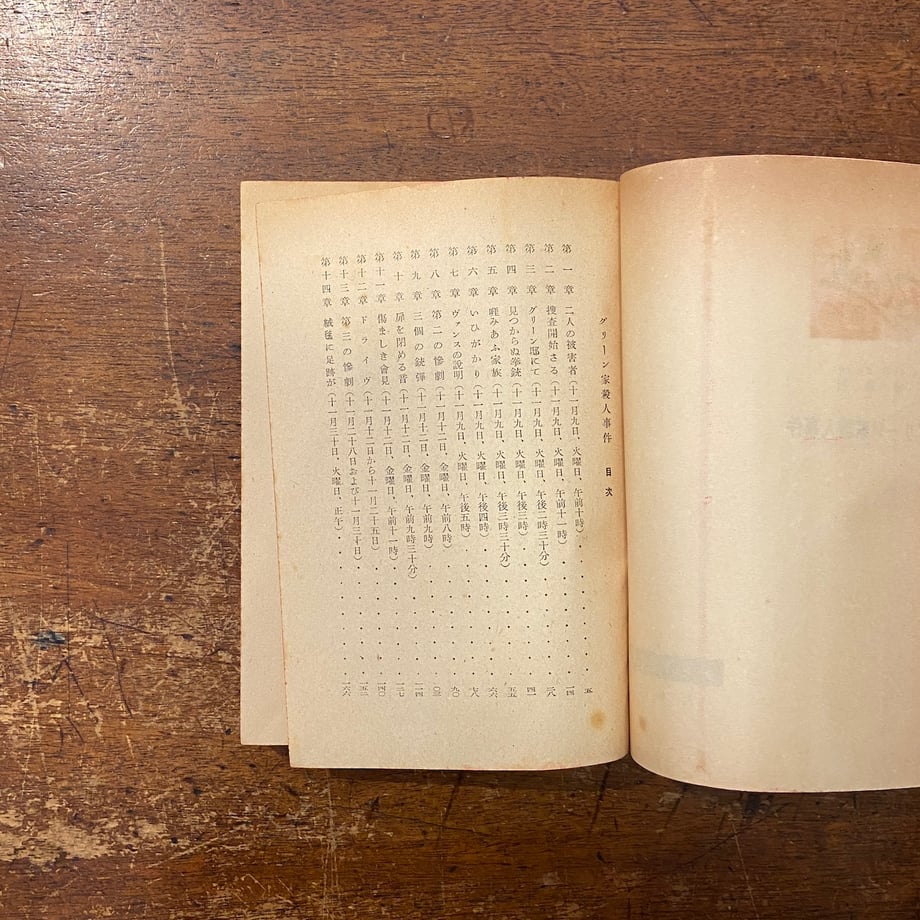 グリーン家殺人事件　目次
第一章　二人の被害者（十一月九日、火曜日、午前十時）・・・・・・・五
第二章　捜査開始さる（十一月九日、火曜日、午前十一時）・・・・・・・一四
第三章　グリーン邸にて（十一月九日、火曜日、午後二時三十分）・・・・・・二八
第四章　見つからぬ拳銃（十一月九日、火曜日、午後三時）・・・・・・・四一
第五章　啀みあふ家族（十一月九日、火曜日、午後三時三十分）・・・・・・五五
第六章　いひがかり（十一月九日、火曜日、午後四時）・・・・・・・六六
第七章　ヴァンスの説明（十一月九日、火曜日、午後五時）・・・・・・・七八
第八章　第二の惨劇（十一月十二日、金曜日、午前八時）・・・・・・・九〇
第九章　三個の銃弾（十一月十二日、金曜日、午前九時）・・・・・・・一〇三
第十章　扉を閉める音（十一月十二日、金曜日、午前九時三十分）・・・・・・一一四
第十一章　傷ましき會見（十一月十二日、金曜日、午前十一時）・・・・・・・一二七
第十二章　ドライヴ（十一月十二日から十一月二十五日）・・・・・・・一四〇
第十三章　第三の惨劇（十一月二十八日および十一月三十日）・・・・・・・一五二
第十四章　絨毯に足跡が（十一月三十日、火曜日、正午）・・・・・・・一六六